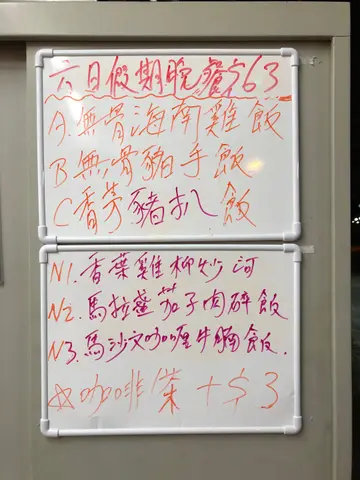 六日假期晚餐$63
A.無骨海南雞飯
B無骨豬手飯
C香茅豬扒飯
N1.香葉雞柳炒河
N2.馬拉盞茄子肉碎飯
N3.馬沙文咖喱牛腩飯.
☆咖啡/茶+$3